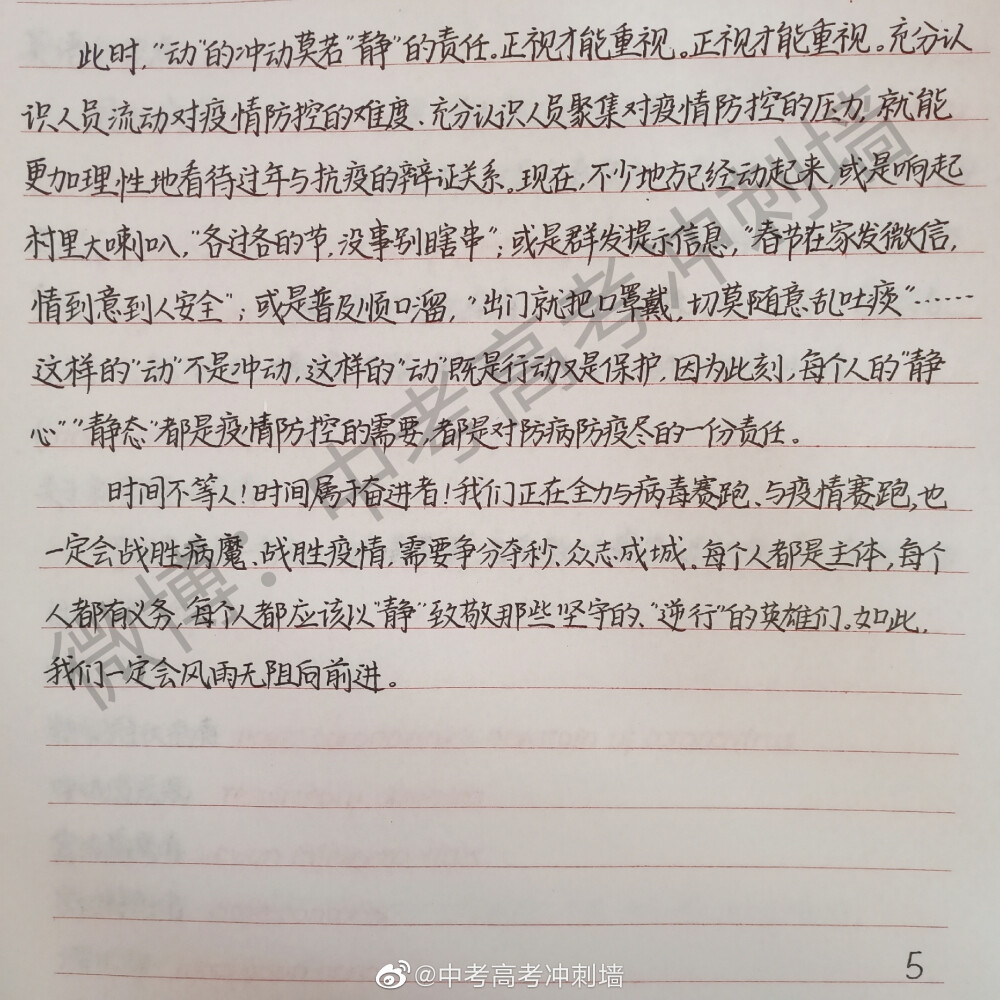 此时，“动”的冲动莫若“静”的责任。正视才能重视。正视才能重视。充分认
识人员流动对疫情防控的难度、充分认识人员聚集对疫情防控的压力，就能
更加理性地看待过年与抗疫的辩证关系。现在，不少地方已经动起来，或是响起
村里大喇叭，“各过各的节，没事别瞎串”；或是群发提示信息，“春节在家发微信，
情到意到人安全”；或是普及顺口溜，“出门就把口罩戴，切莫随意乱吐痰”……
这样的“动”不是冲动，这样的“动”既是行动又是保护，因为此刻，每个人的“静
心”“静态”都是疫情防控的需要，都是对防病防疫尽的一份责任。
时间不等人！时间属于奋进者！我们正在全力与病毒赛跑、与疫情赛跑，也
一定会战胜病魔、战胜疫情，需要争分夺秒、众志成城。每个人都是主体，每个
人都有义务，每个人都应该以“静”致敬那些坚守的、“逆行”的英雄们。如此，
我们一定会风雨无阻向前进。
微博：中考高考冲刺墙
5
@中考高考冲刺墙